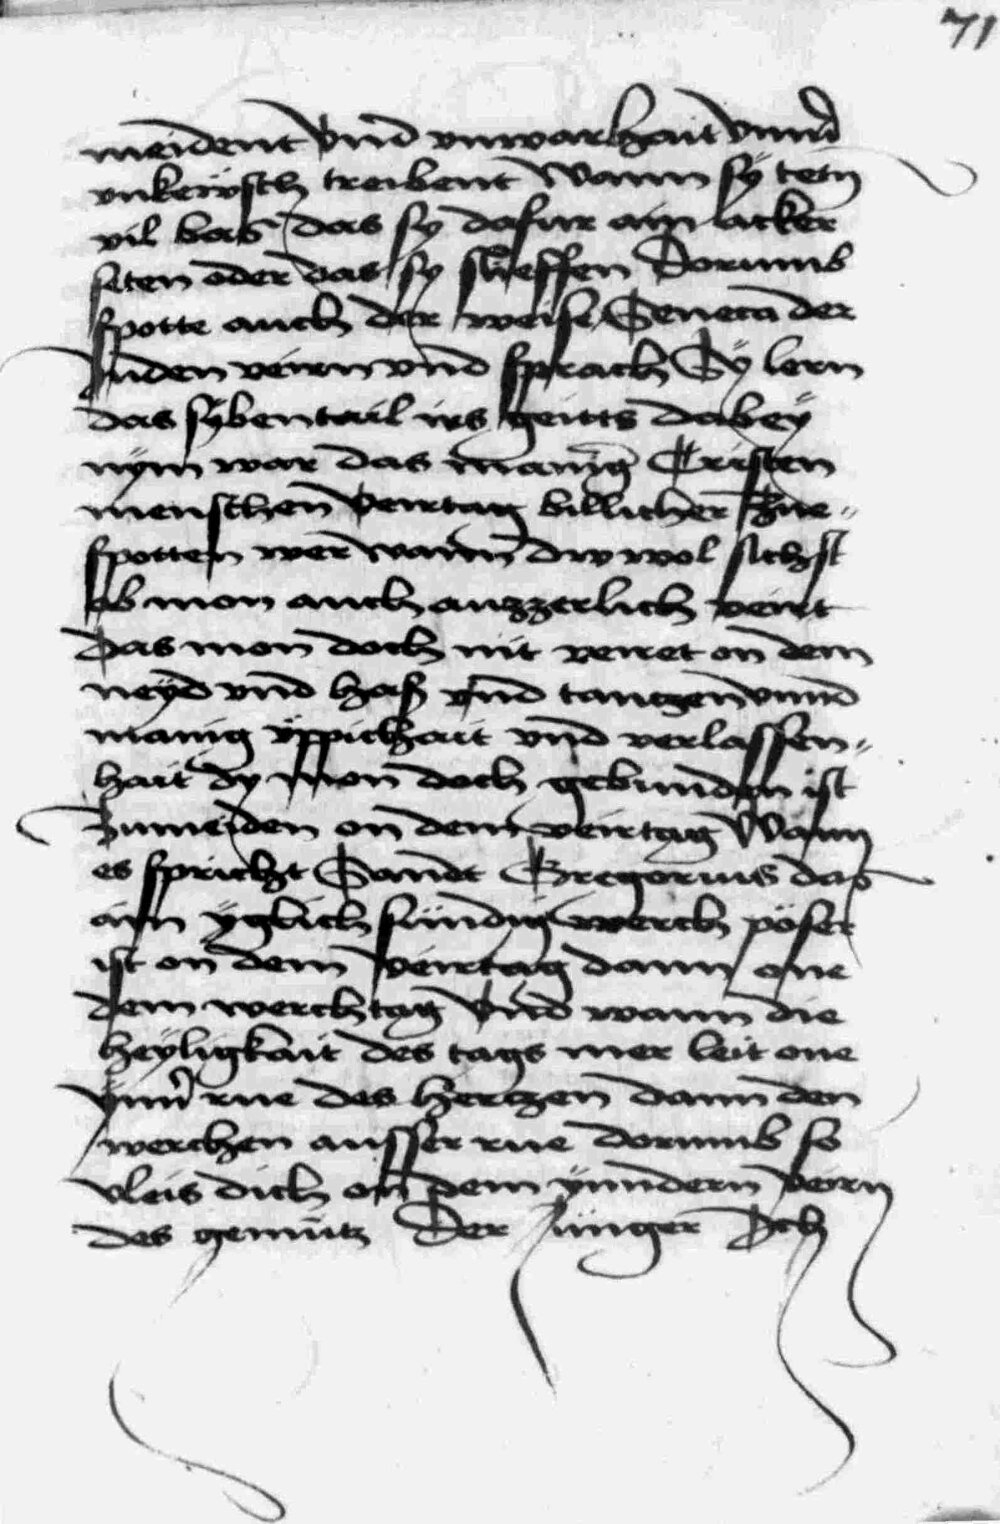 71
meident vnd vnwarhait vnnd
vnkeüsch treibent Wann sÿ tetn
vil bas das sy dafur ain acker
seten oder das sy slieffen Dorumb
spotte auch der weise Seneca der
Juden veirn vnd sprach Sÿ lern
das sÿbentail irs zeitts dabeÿ
nÿm war das manig Cristen
menschen veirtag billicher zue-
spotten wer wann dw wol sichst
ob mon auch auzzerlich veirt
Das mon doch nit veiret on dem
neÿd vnd haß vnd tantzen vnnd
manig ÿppichait vnd verlassen-
hait dy mon doch gebunden ist
Zumeiden on dem veirtag Wann
es spricht Sandt Gregorius das
ain ÿglich sündig werch pöser
ist on dem veirtag dann one
dem werchtag Vnd wann die
heÿligkait des tags mer leit one
ÿnn rue des hertzen dann den
werchen ausser rue dorumb so
vleis dich on dem ÿnndern veirn
des gemütz Der Jünger Ich